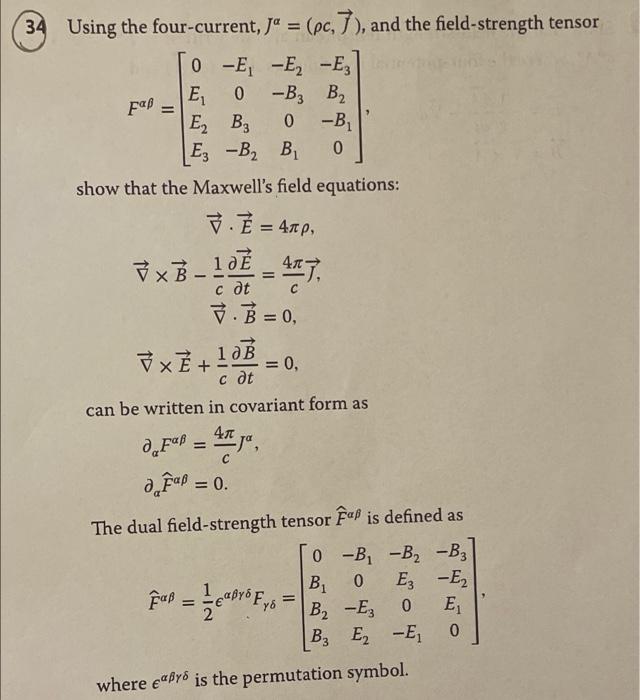 34 Using the four-current, J^α = (ρc, \vec{J}), and the field-strength tensor
F^{αβ} = \begin{bmatrix} 0 & -E_1 & -E_2 & -E_3 \\ E_1 & 0 & -B_3 & B_2 \\ E_2 & B_3 & 0 & -B_1 \\ E_3 & -B_2 & B_1 & 0 \end{bmatrix},
show that the Maxwell's field equations:
\vec{∇} · \vec{E} = 4πρ,
\vec{∇} × \vec{B} - \frac{1}{c} \frac{∂\vec{E}}{∂t} = \frac{4π}{c} \vec{J},
\vec{∇} · \vec{B} = 0,
\vec{∇} × \vec{E} + \frac{1}{c} \frac{∂\vec{B}}{∂t} = 0,
can be written in covariant form as
∂_α F^{αβ} = \frac{4π}{c} J^α,
∂_α \hat{F}^{αβ} = 0.
The dual field-strength tensor \hat{F}^{αβ} is defined as
\hat{F}^{αβ} = \frac{1}{2} ϵ^{αβγδ} F_{γδ} = \begin{bmatrix} 0 & -B_1 & -B_2 & -B_3 \\ B_1 & 0 & E_3 & -E_2 \\ B_2 & -E_3 & 0 & E_1 \\ B_3 & E_2 & -E_1 & 0 \end{bmatrix},
where ϵ^{αβγδ} is the permutation symbol.